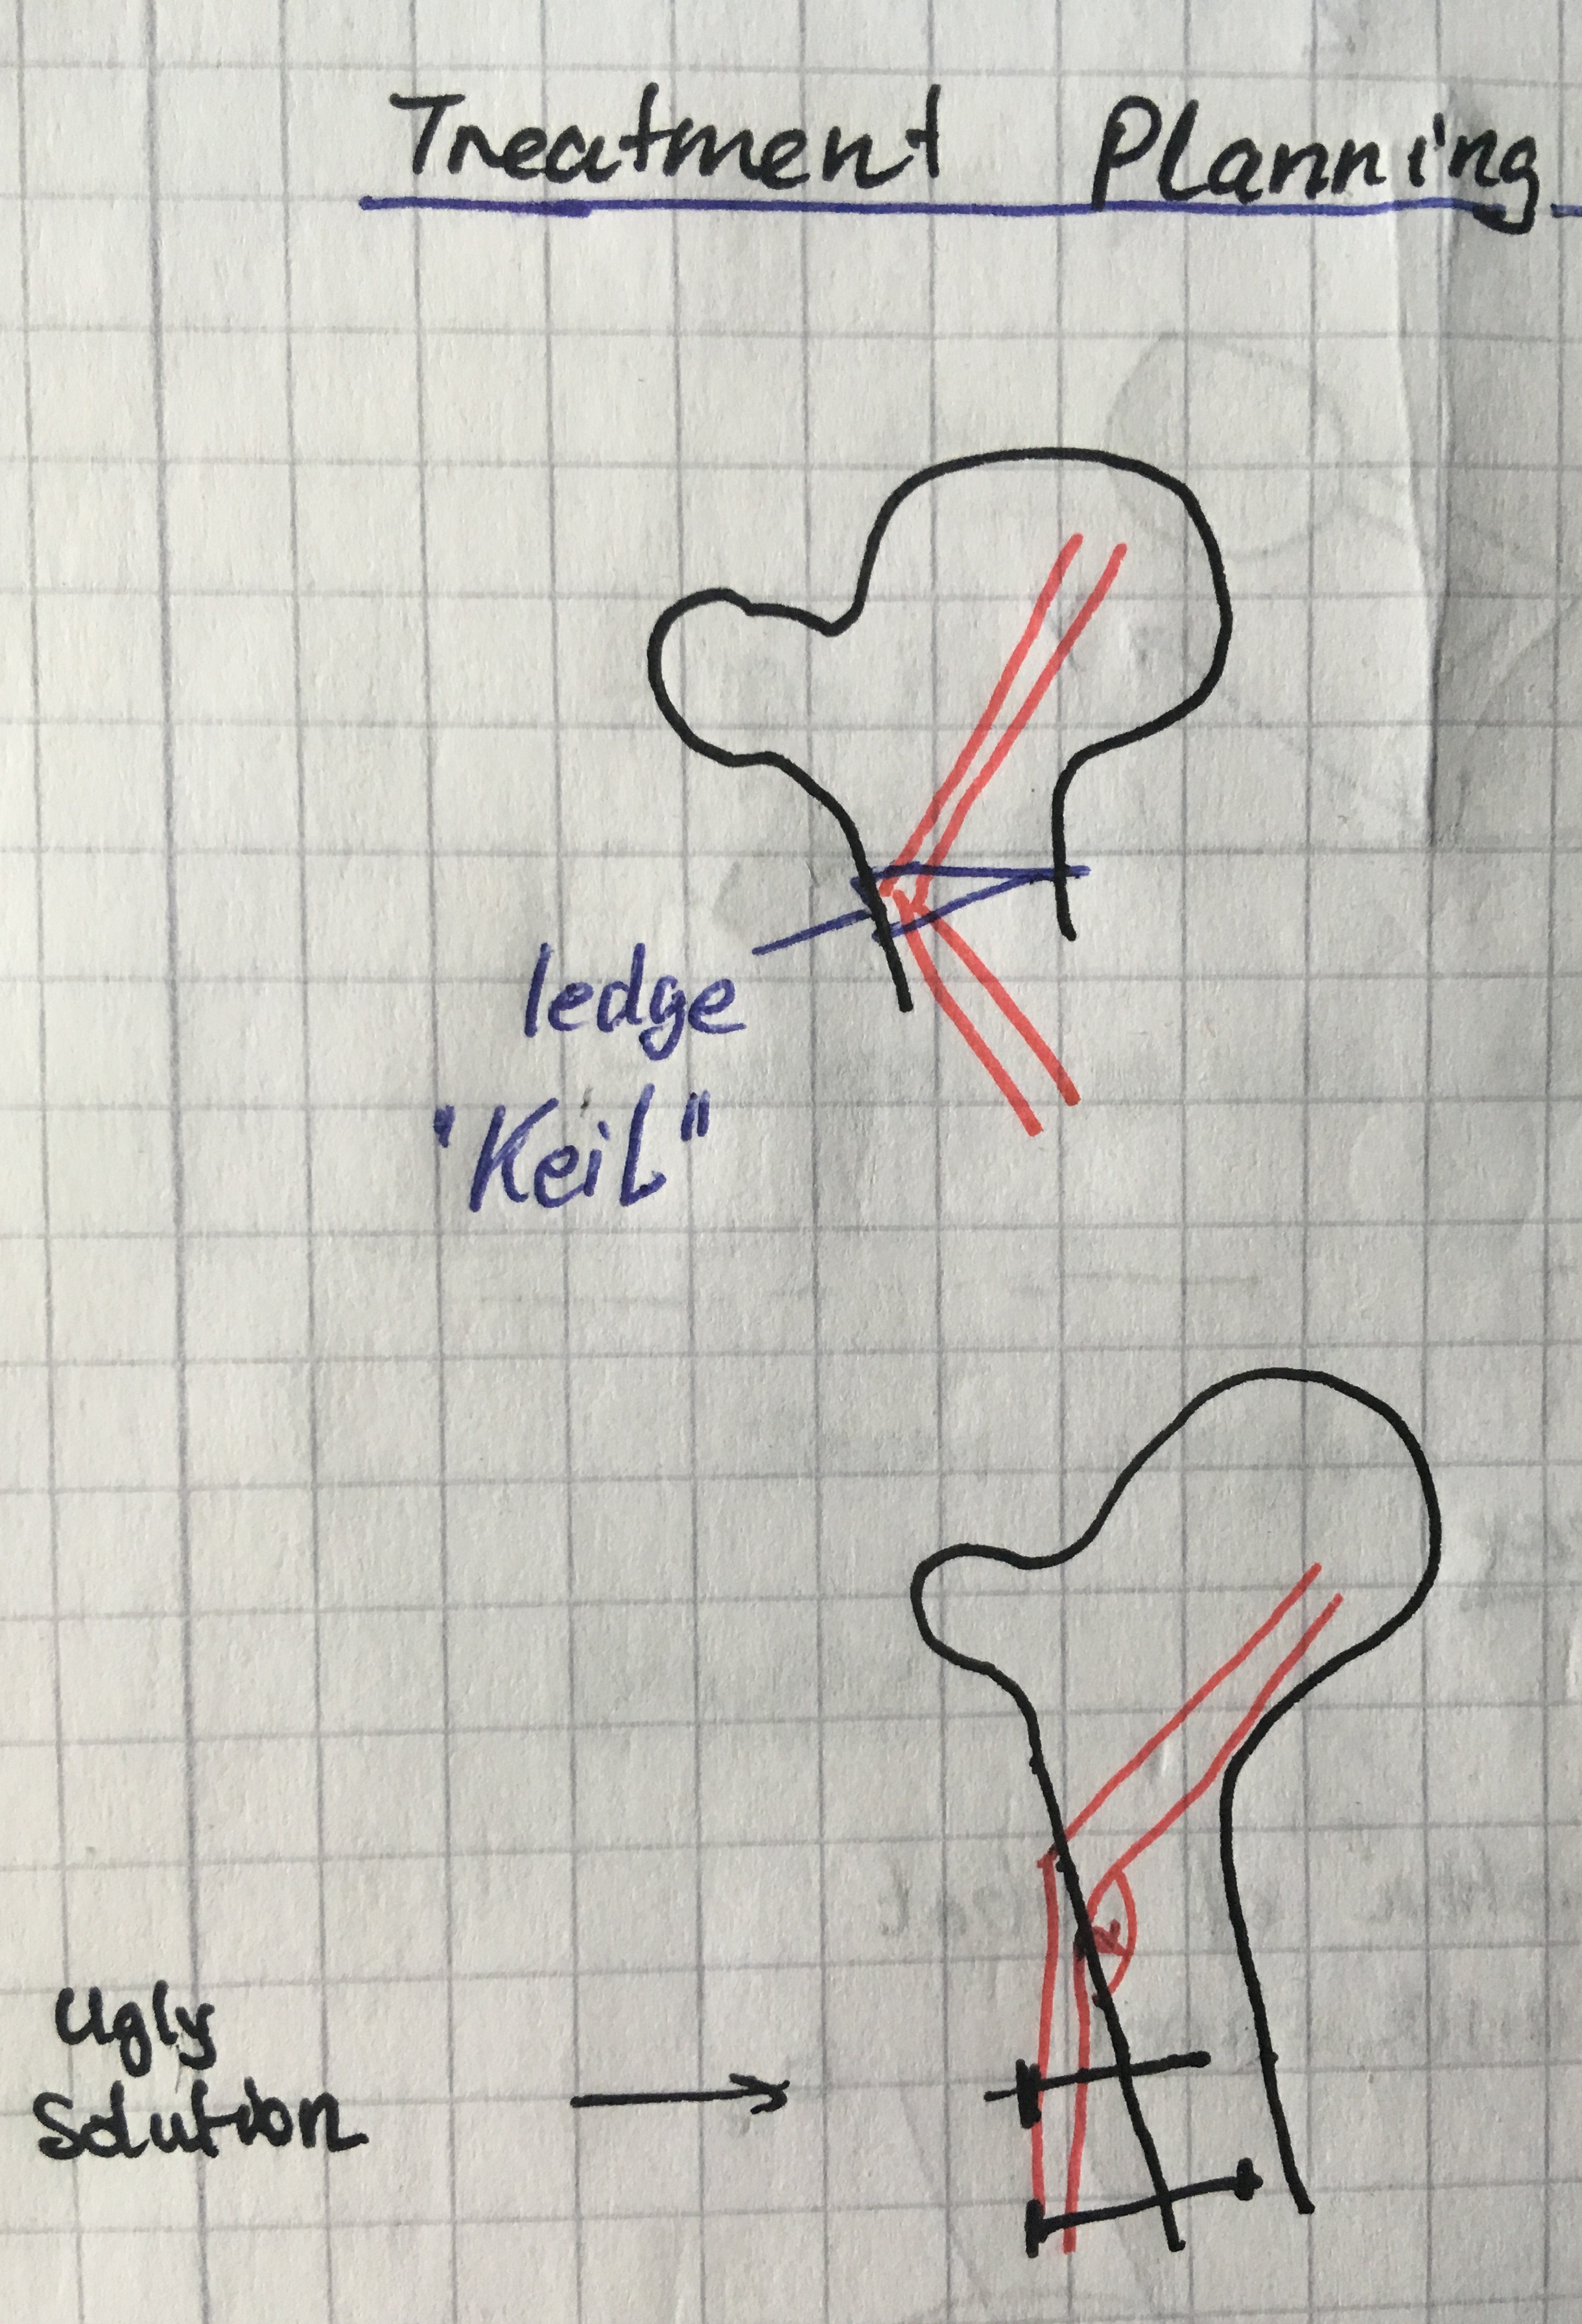 Treatment Planning
ledge
"KeiL"
Ugly
Solution